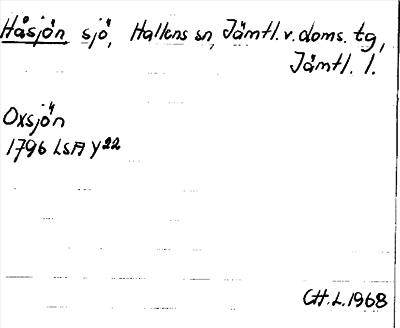 Håsjön sjö, Hallens sn, Jämtl. v. doms. tg,
Jämtl. l.
Oxsjön
1796 LSA Y22
CH.L. 1968